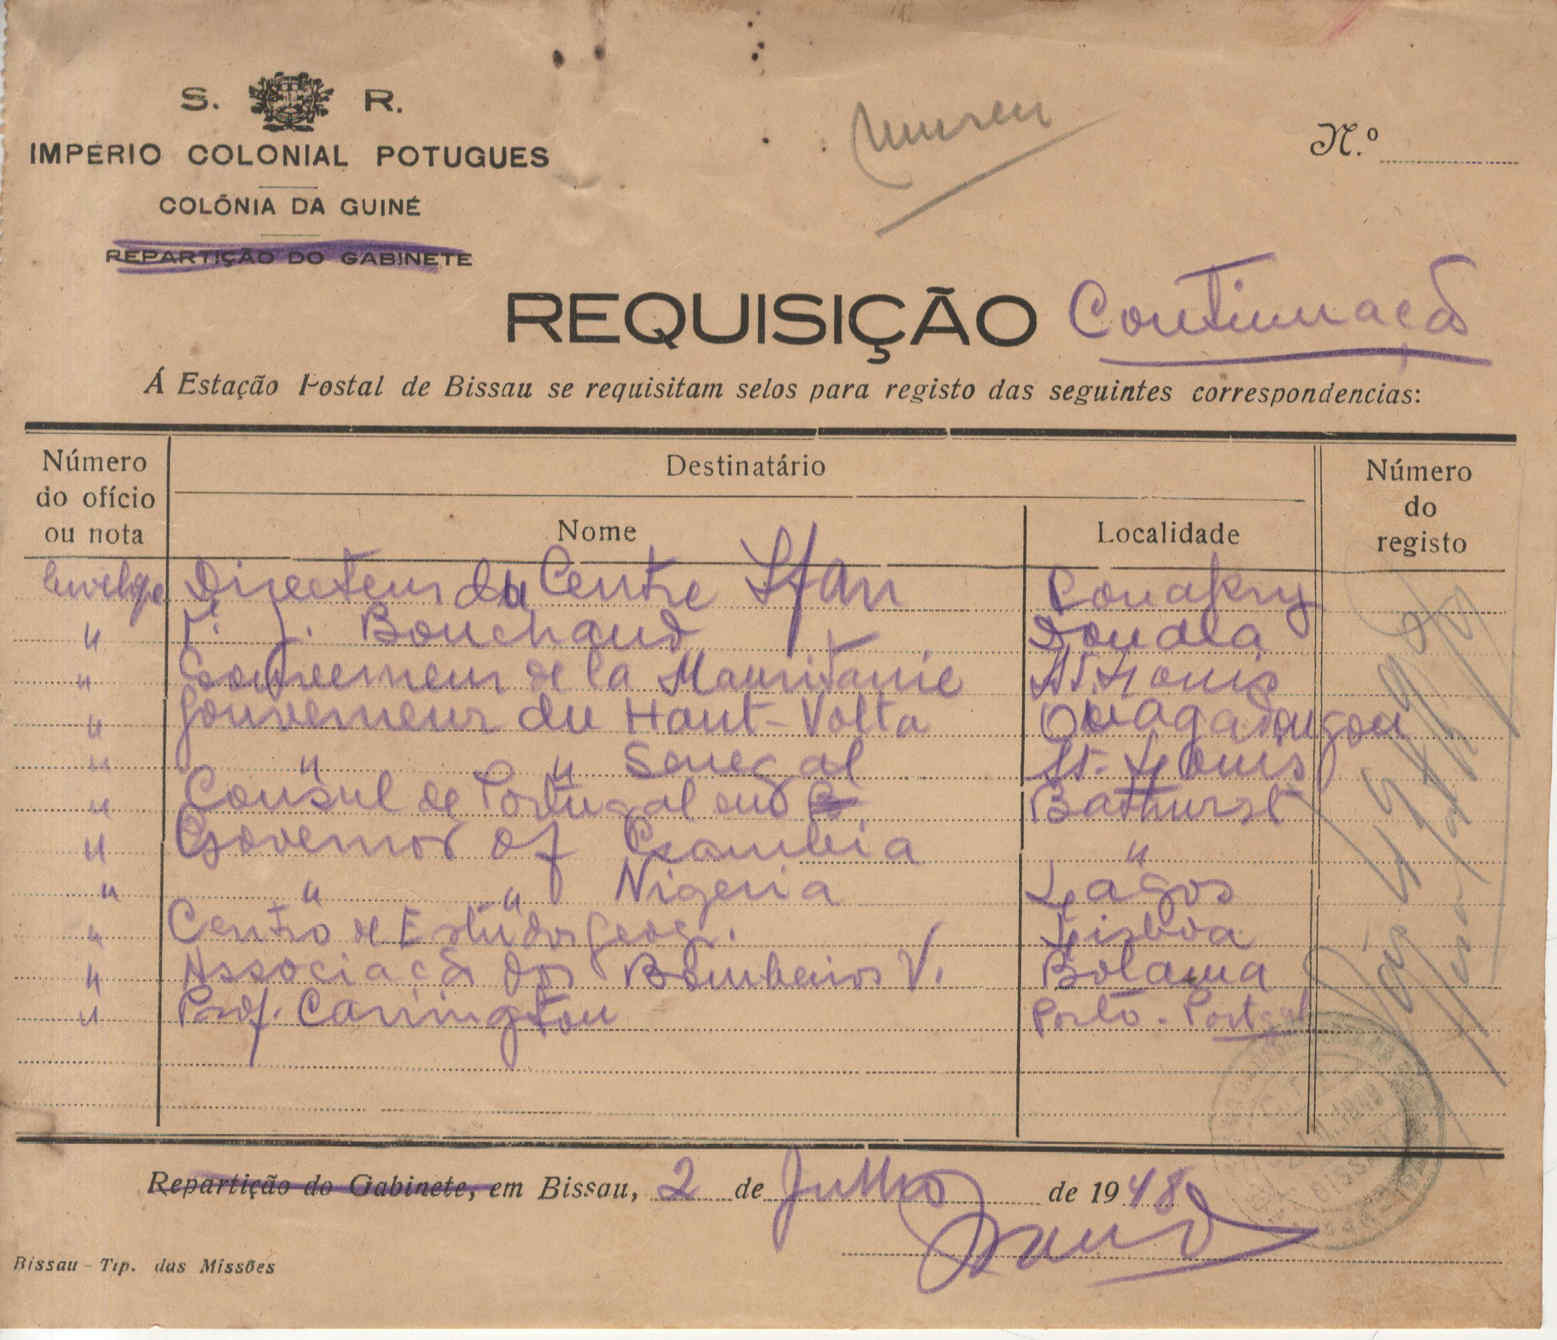 S. R.
IMPÉRIO COLONIAL POTUGUES
COLÓNIA DA GUINÉ
REPARTIÇÃO DO GABINETE
N.º
REQUISIÇÃO Continuação
Á Estação Postal de Bissau se requisitam selos para registo das seguintes correspondencias:
Número do ofício ou nota
Destinatário
Nome
Localidade
Número do registo
Directeur du Centre Ifan Conakry
" P. J. Bouchaud Douala
" Gouverneur de la Mauritanie St. Louis
" Gouverneur du Haut-Volta Ouagadougou
" " " Senegal St. Louis
" Consul de Portugal em Bathurst
" Governor of Gambia "
" " " Nigeria Lagos
" Centro de Estudos Geogr. Lisboa
" Associação dos Bombeiros V. Bolama
" Prof. Carrington Porto - Portugal
Repartição do Gabinete, em Bissau, 2 de Julho de 1948
Bissau - Tip. das Missões